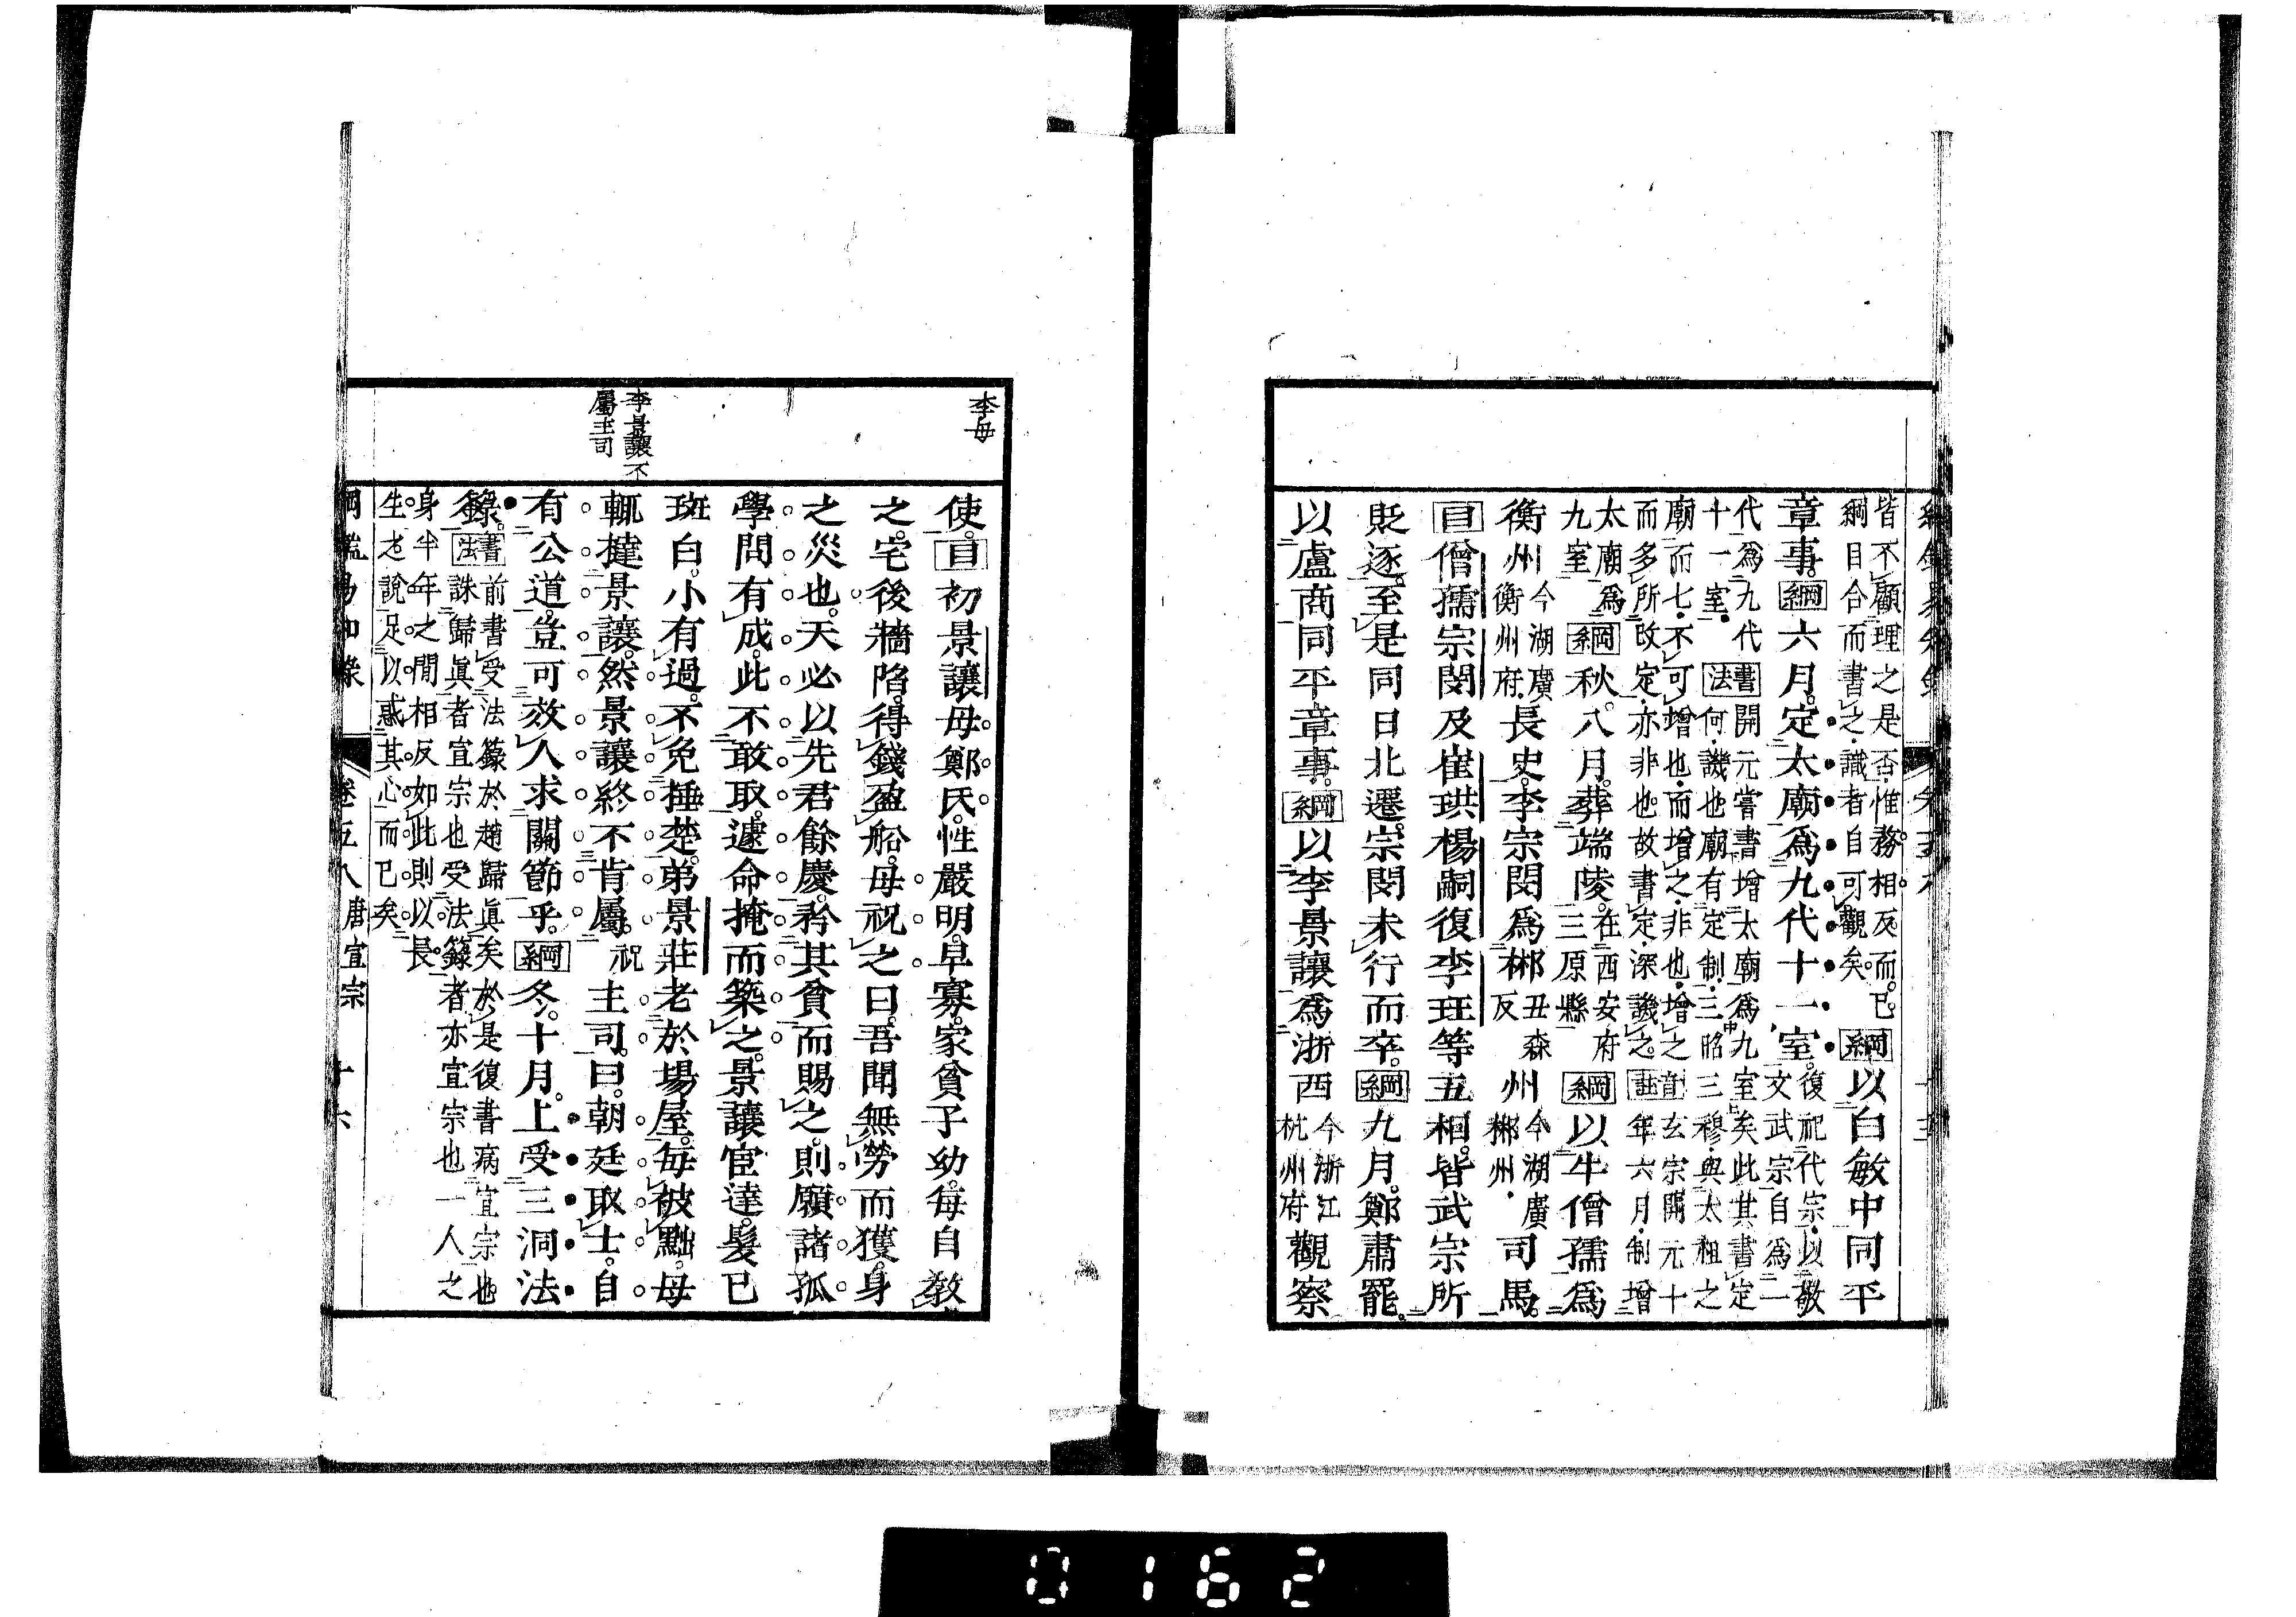 皆不顧理之是否惟務相反而已
綱目合而書之識者自可觀矣
綱以白敏中同平
章事綱六月定太廟爲九代十一室
復祀代宗以敬
文武宗自爲一
代爲九代
十一室
書法開元嘗書增太廟爲九室矣此其書定
何譏也廟有定制三昭三穆與太祖之
廟而七不可增也而增之非也增之
而多所改定亦非也故書定深譏之
註玄宗開元十
年六月制增
太廟爲
九室
綱秋八月葬端陵
在西安府
三原縣
綱以牛僧孺爲
衡州
今湖廣
衡州府
長史李宗閔爲郴
丑森
反
州
今湖廣
郴州
司馬
目僧孺宗閔及崔珙楊嗣復李珏等五相皆武宗所
貶逐至是同日北遷宗閔未行而卒綱九月鄭肅罷
以盧商同平章事綱以李景讓爲浙西
今浙江
杭州府
觀察
李母
使目初景讓母鄭氏性嚴明早寡家貧子幼每自教
之宅後牆陷得錢盈船母祝之曰吾聞無勞而獲身
之災也天必以先君餘慶矜其貧而賜之則願諸孤
學問有成此不敢取遽命掩而築之景讓宦達髮已
斑白小有過不免捶楚弟景莊老於場屋每被黜母
李景讓不
屬主司
輒撻景讓然景讓終不肯屬
祝
主司曰朝廷取士自
有公道豈可效人求關節乎綱冬十月上受三洞法
籙
書法前書受法籙於趙歸眞矣於是復書病宣宗也
誅歸眞者宣宗也受法籙者亦宣宗也一人之
身半年之閒相反如此則以長
生之說足以惑其心而已矣
綱鑑易知錄 卷五八唐宣宗 十六